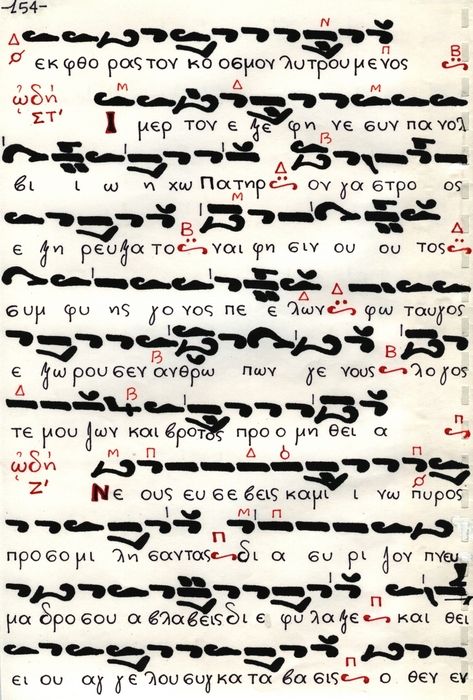 -154-
Ν
Δ Π Β
εκ φθο ρας τον κο οσμον λυτρουμενος
ὠδή ΣΤ'
Μ Δ Μ
Ι μερ τον ε ξε φη νε συν παν ολ
Β
βι ι ω η χω Πατηρ Δ ον γα στρο ος
Μ
ε ξη ρευξα το Β ναι φη σιν ου ου τος Δ
Δ
συμ φυ ης γο νος πε ε λων Δ φω ταυγος
Β
ε ξω ρουσεν ανθρω πων γε νους Β λο γος
Δ Β
τε μου ζων και βροτος προ ο μη θει α Π
ὠδή Ζ'
Μ Π Δ Π
Νε ους ευ σε βεις καμι ι νω πυρος
Μ Π
προσομι λη σαντας Π δι α συ ρι ζον πνευ
μα δρο σου α βλαβεις δι ε φυ λαξε Π και θει
ει ου αγ γε λου συγκατα βασις Π ο θεν εν